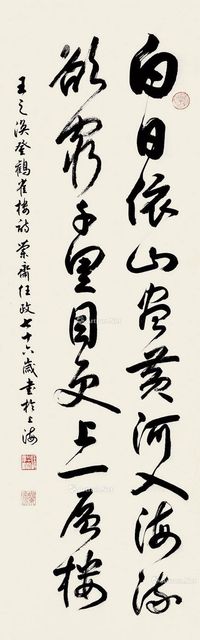 白日依山尽黄河入海流
欲穷千里目更上一层楼
王之涣登鹳雀楼诗 兰斋任政七十六岁书于上海